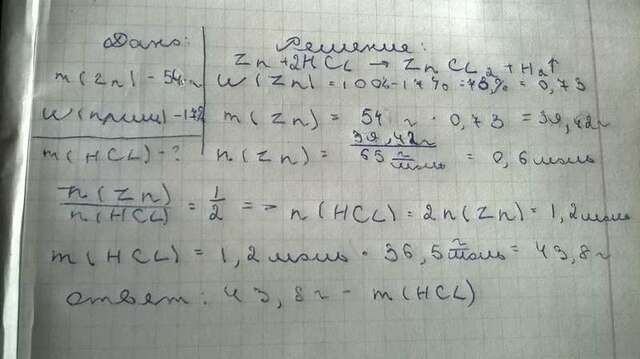 Дано:
Решение:
Zn + 2HCl → ZnCl₂ + H₂↑
m(Zn) - 54 г
w(Zn) = 100% - 17% = 73% = 0,73
w(прим) - 17%
m(Zn) = 54 г · 0,73 = 39,42г
m(HCl) - ?
n(Zn) = 39,42г / 65 г/моль = 0,6 моль
n(Zn) / n(HCl) = 1/2 => n(HCl) = 2n(Zn) = 1,2 моль
m(HCl) = 1,2 моль · 36,5 г/моль = 43,8 г
ответ: 43,8 г - m(HCl)